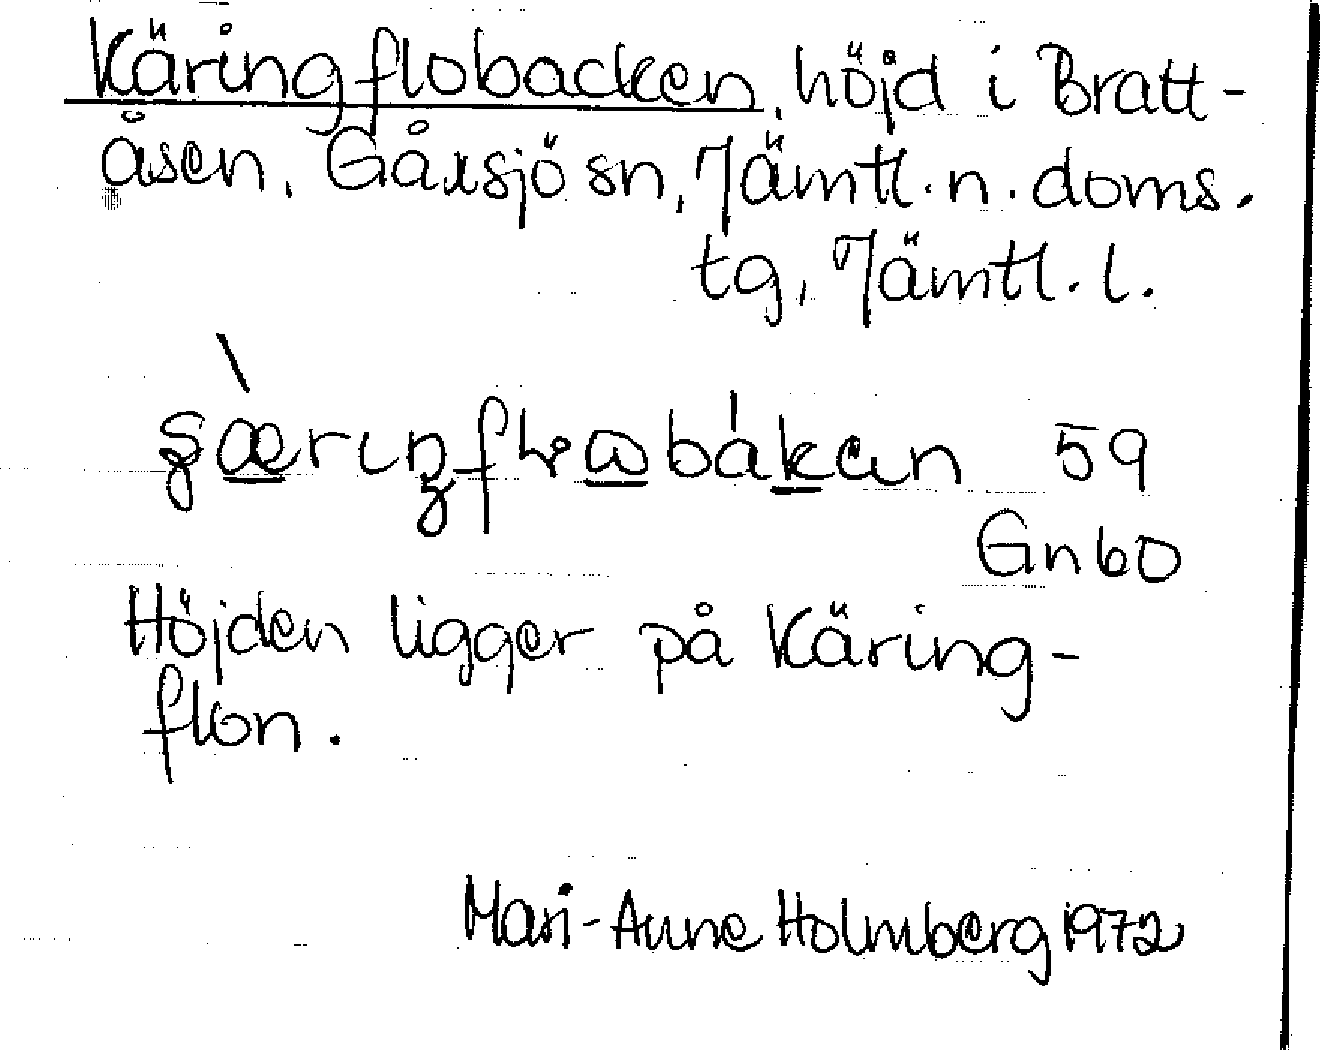 Käringflobacken, höjd i Bratt-
åsen, Gåxsjö sn, Jämtl. n. doms.
tg, Jämtl. l.
59
Gn 60
Höjden ligger på Käring-
flon.
Mari-Anne Holmberg 1972